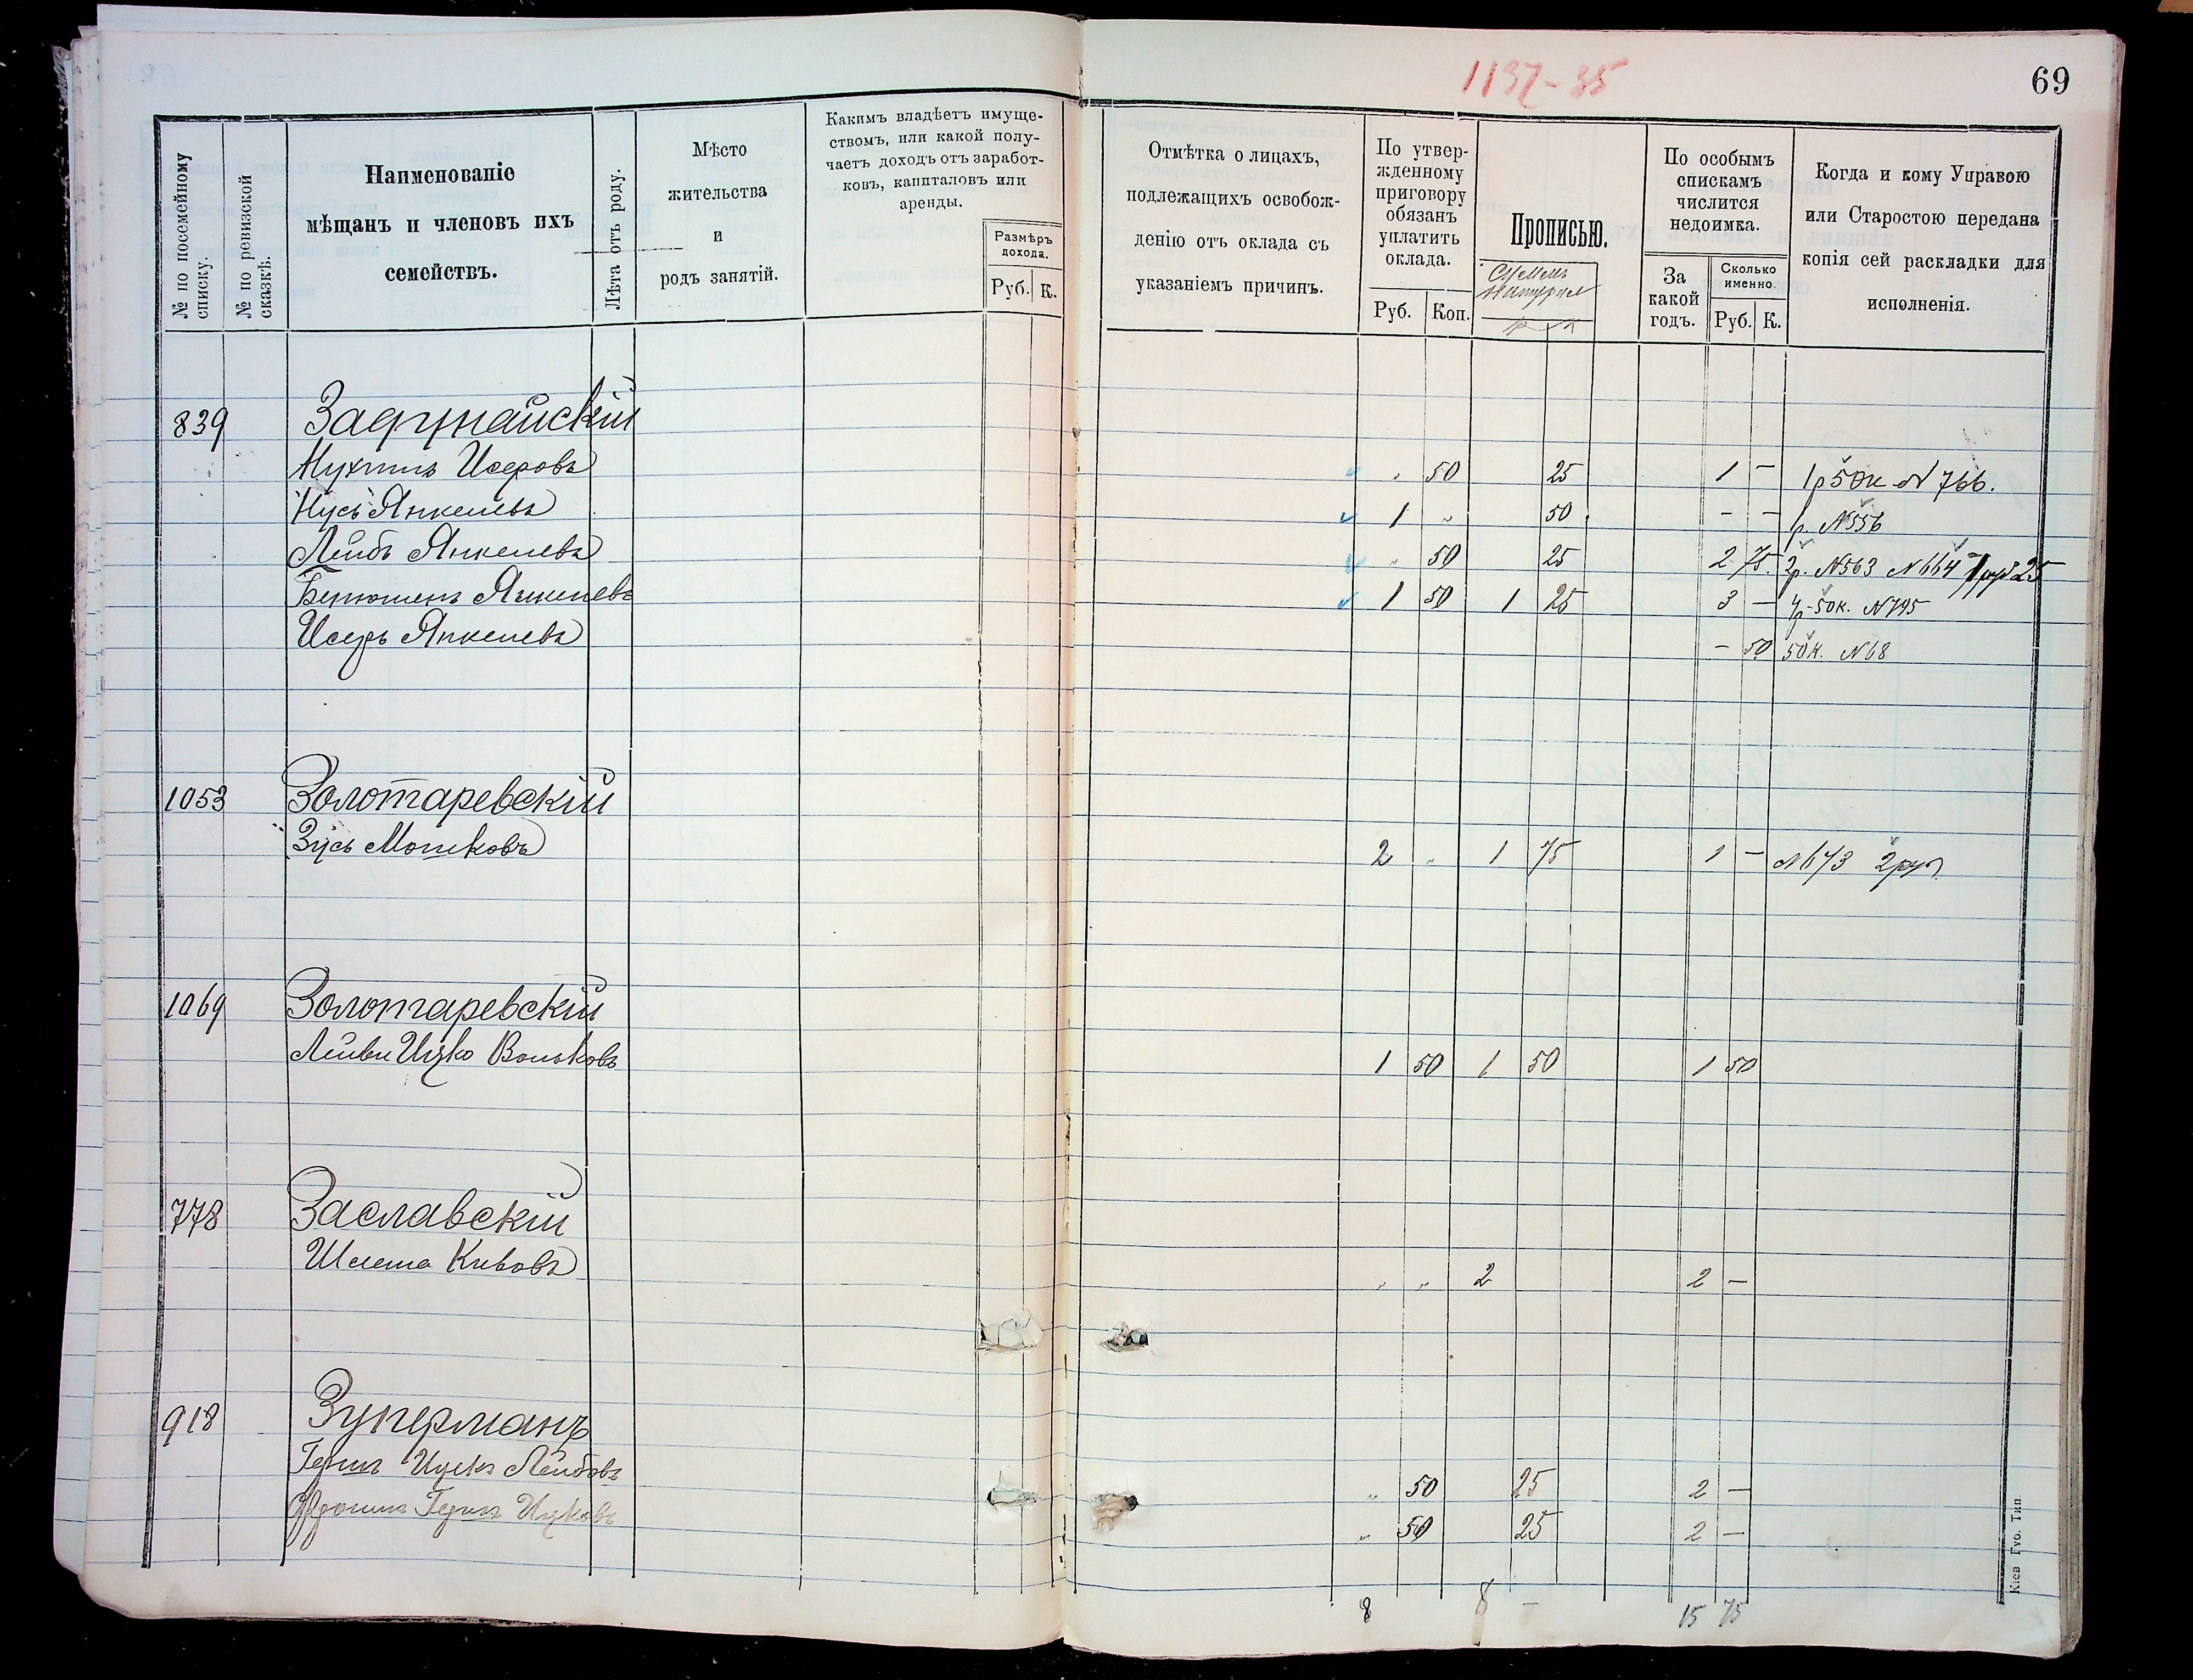 1137-35
69
№ по посемейному списку.
№ по ревизской сказкѣ.
Наименованіе
мѣщанъ и членовъ ихъ
семействъ.
Лѣта отъ роду.
Мѣсто
жительства
и
родъ занятій.
Какимъ владѣетъ имуще-
ствомъ, или какой полу-
чаетъ доходъ отъ заработ-
ковъ, капиталовъ или
аренды.
Размѣръ
дохода.
Руб. К.
Отмѣтка о лицахъ,
подлежащихъ освобож-
денію отъ оклада съ
указаніемъ причинъ.
По утвер-
жденному
приговору
обязанъ
уплатить
оклада.
Руб. Коп.
Прописью.
По особымъ
спискамъ
числится
недоимка.
За
какой
годъ.
Сколько
именно.
Руб. К.
Когда и кому Управою
или Старостою передана
копія сей раскладки для
исполненія.
839 Задунайскій
Исеровъ " 50 25 1 - 1р 50к N 766.
Нусь Янкелевъ 1 " 50 - - р. N556
Лейбъ Янкелевъ " 50 25 2 75 2р. N563 N664 1 руб 25
Янкелевъ 1 50 1 25 3 - 4р-50к. N795
Исеръ Янкелевъ - 50 50к. N68
1053 Золотаревскій
Зусь Мошковъ 2 " 1 75 1 - N673 2руб
1069 Золотаревскій
Ицко Вольковъ 1 50 1 50 1 50
778 Заславскій
Шлема Кивовъ " " 2 2 -
918 Зуперманъ
Гершъ Ицекъ Лейбовъ " 50 25 2 -
Фроимъ Гершъ Ицковъ " 50 25 2 -
8 8 - 15 75
Кіев. Губ. Тип.